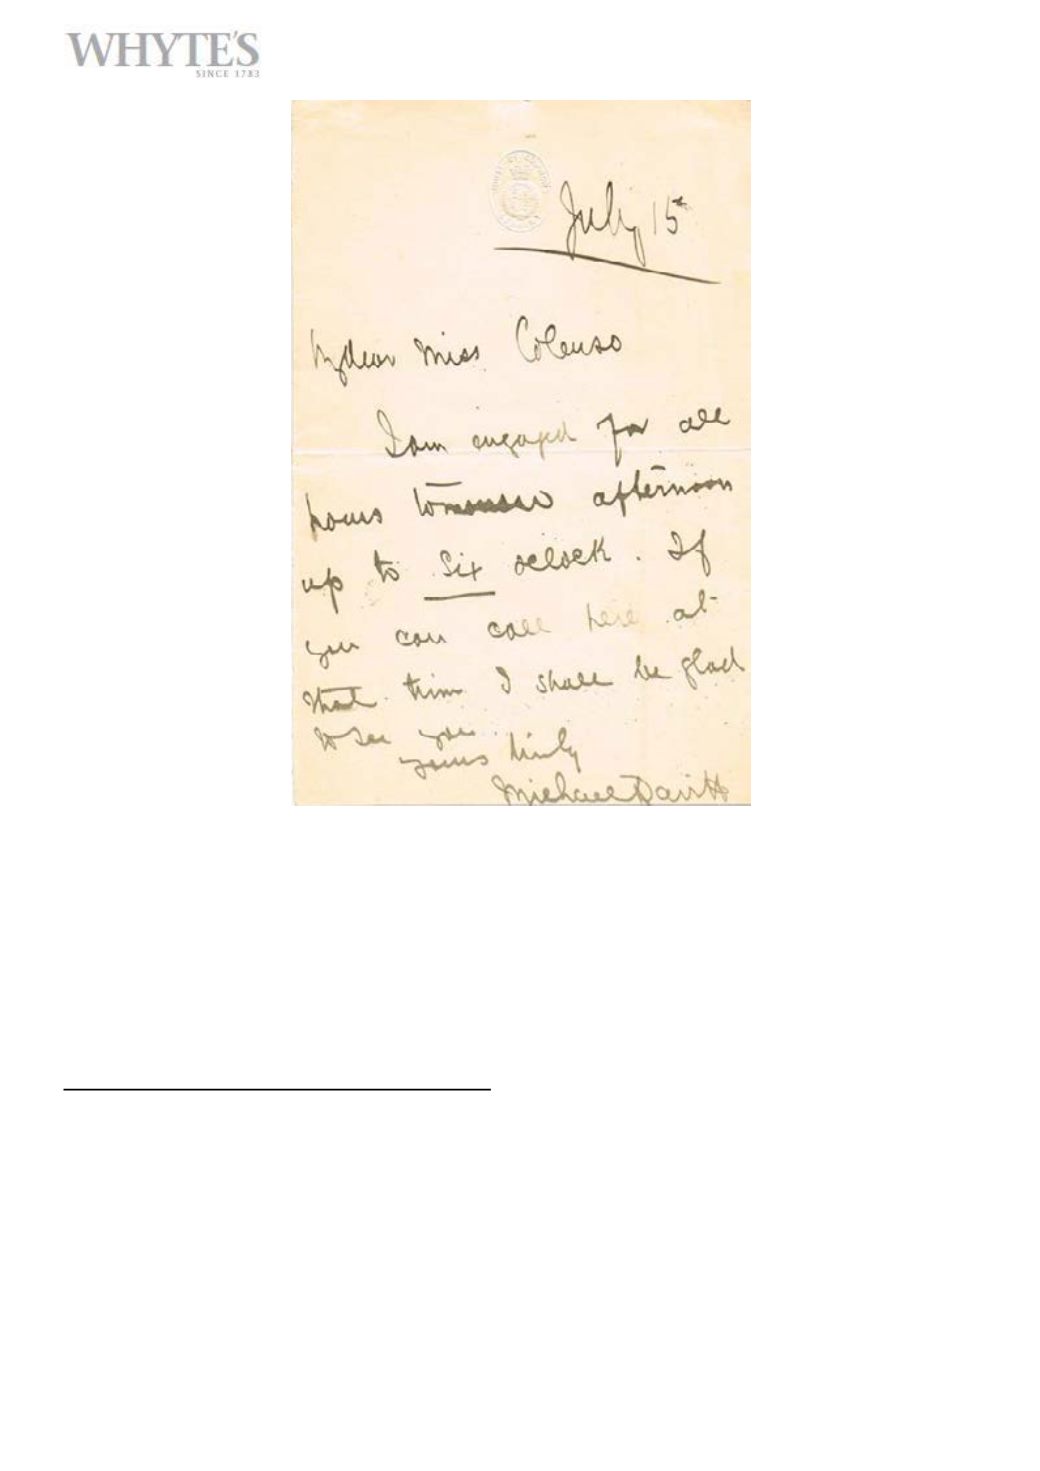 WHYTE'S
SINCE 1783
July 15th
My dear Miss Colenso
I am engaged for all
hours tomorrow afternoon
up to Six oclock. If
you can call here at
that time I shall be glad
to see you.
yours truly
Michael Davitt